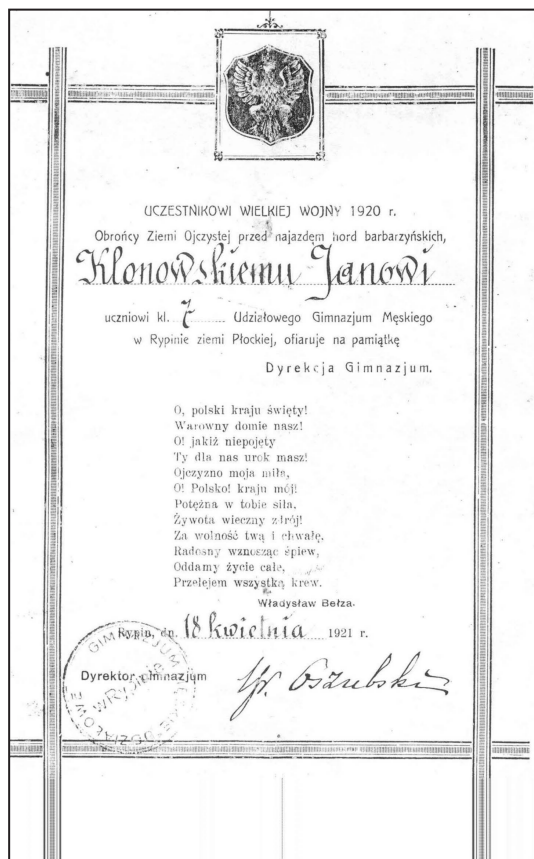 UCZESTNIKOWI WIELKIEJ WOJNY 1920 r.
Obrońcy Ziemi Ojczystej przed najazdem hord barbarzyńskich,
Klonowskiemu Janowi
uczniowi kl. 7 Udziałowego Gimnazjum Męskiego
w Rypinie ziemi Płockiej, ofiaruje na pamiątkę
Dyrekcja Gimnazjum.
O, polski kraju święty!
Warowny domie nasz!
O! jakiż niepojęty
Ty dla nas urok masz!
Ojczyzno moja miła,
O! Polsko! kraju mój!
Potężna w tobie siła,
Żywota wieczny zdrój!
Za wolność twą i chwałę,
Radosny wznosząc śpiew,
Oddamy życie całe,
Przelejem wszystką krew.
Władysław Bełza.
Rypin, dn. 18 kwietnia 1921 r.
Dyrektor gimnazjum
GIMNAZJUM MĘSKIE UDZIAŁOWE
w Rypinie